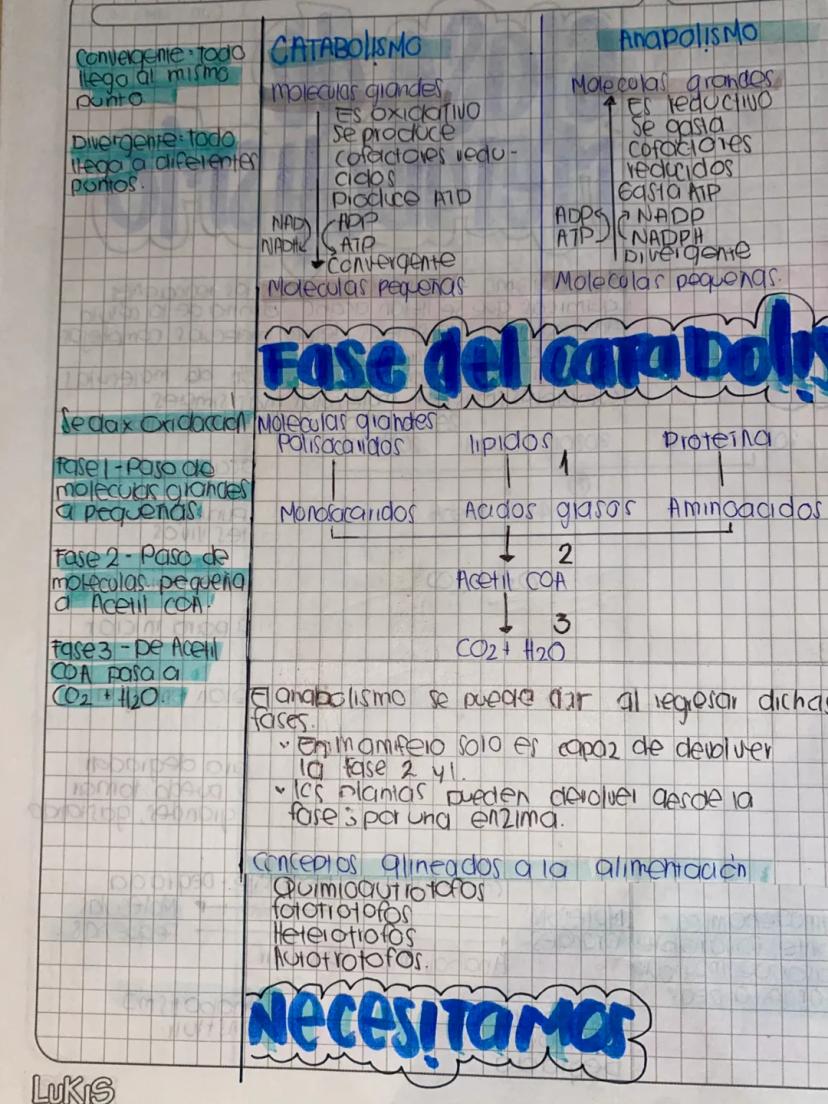 Convergente: todo
llego al mismo
punto
Divergente: todo
llego a diferentes
puntos.
CATABOLISMO
moleculas grandes
Es oxidativo
se produce
cofactores redu-
cidos
Produce ATP
NAD
NADH
ADP
ATP
convergente
Moleculas pequeñas
Anabolismo
Moleculas grandes
Es reductivo
Se gasta
cofactores
reducidos
Gasta ATP
ADP
ATP
NADP
NADPH
Divergente
Moleculas pequeñas.
Fase del catabolis
Se da x oxidación
Moleculas grandes
Polisacaridos lipidos 1 Proteína
Fase 1 - Paso de
moleculas grandes
a pequeñas.
Monosacaridos Acidos grasos Aminoacidos
Fase 2 - Paso de
moléculas pequeña
a Acetil COA.
2
Acetil COA
3
CO2 + H2O
Fase 3 - De Acetil
COA pasa a
CO2 + H2O.
El anabolismo se puede dar al regresar dichas
fases.
En mamifero solo es capaz de devolver
la fase 2 y 1.
las plantas pueden devolver desde la
fase 3 por una enzima.
Conceptos alineados a la alimentación
Quimioautrotofos
fototrotofos
Heterotrofos
Autotrotofos.
Necesitamos
LUKIS